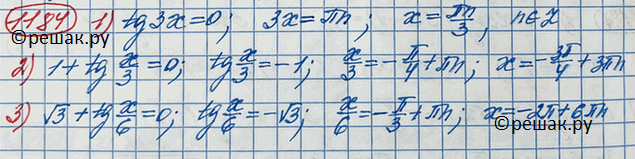 1184 1) tg3x=0; 3x=πn; x=πn/3, n∈Z
2) 1+tg x/3=0; tg x/3=-1; x/3=-π/4+πn; x=-3π/4+3πn
3) √3+tg x/6=0; tg x/6=-√3; x/6=-π/3+πn; x=-2π+6πn